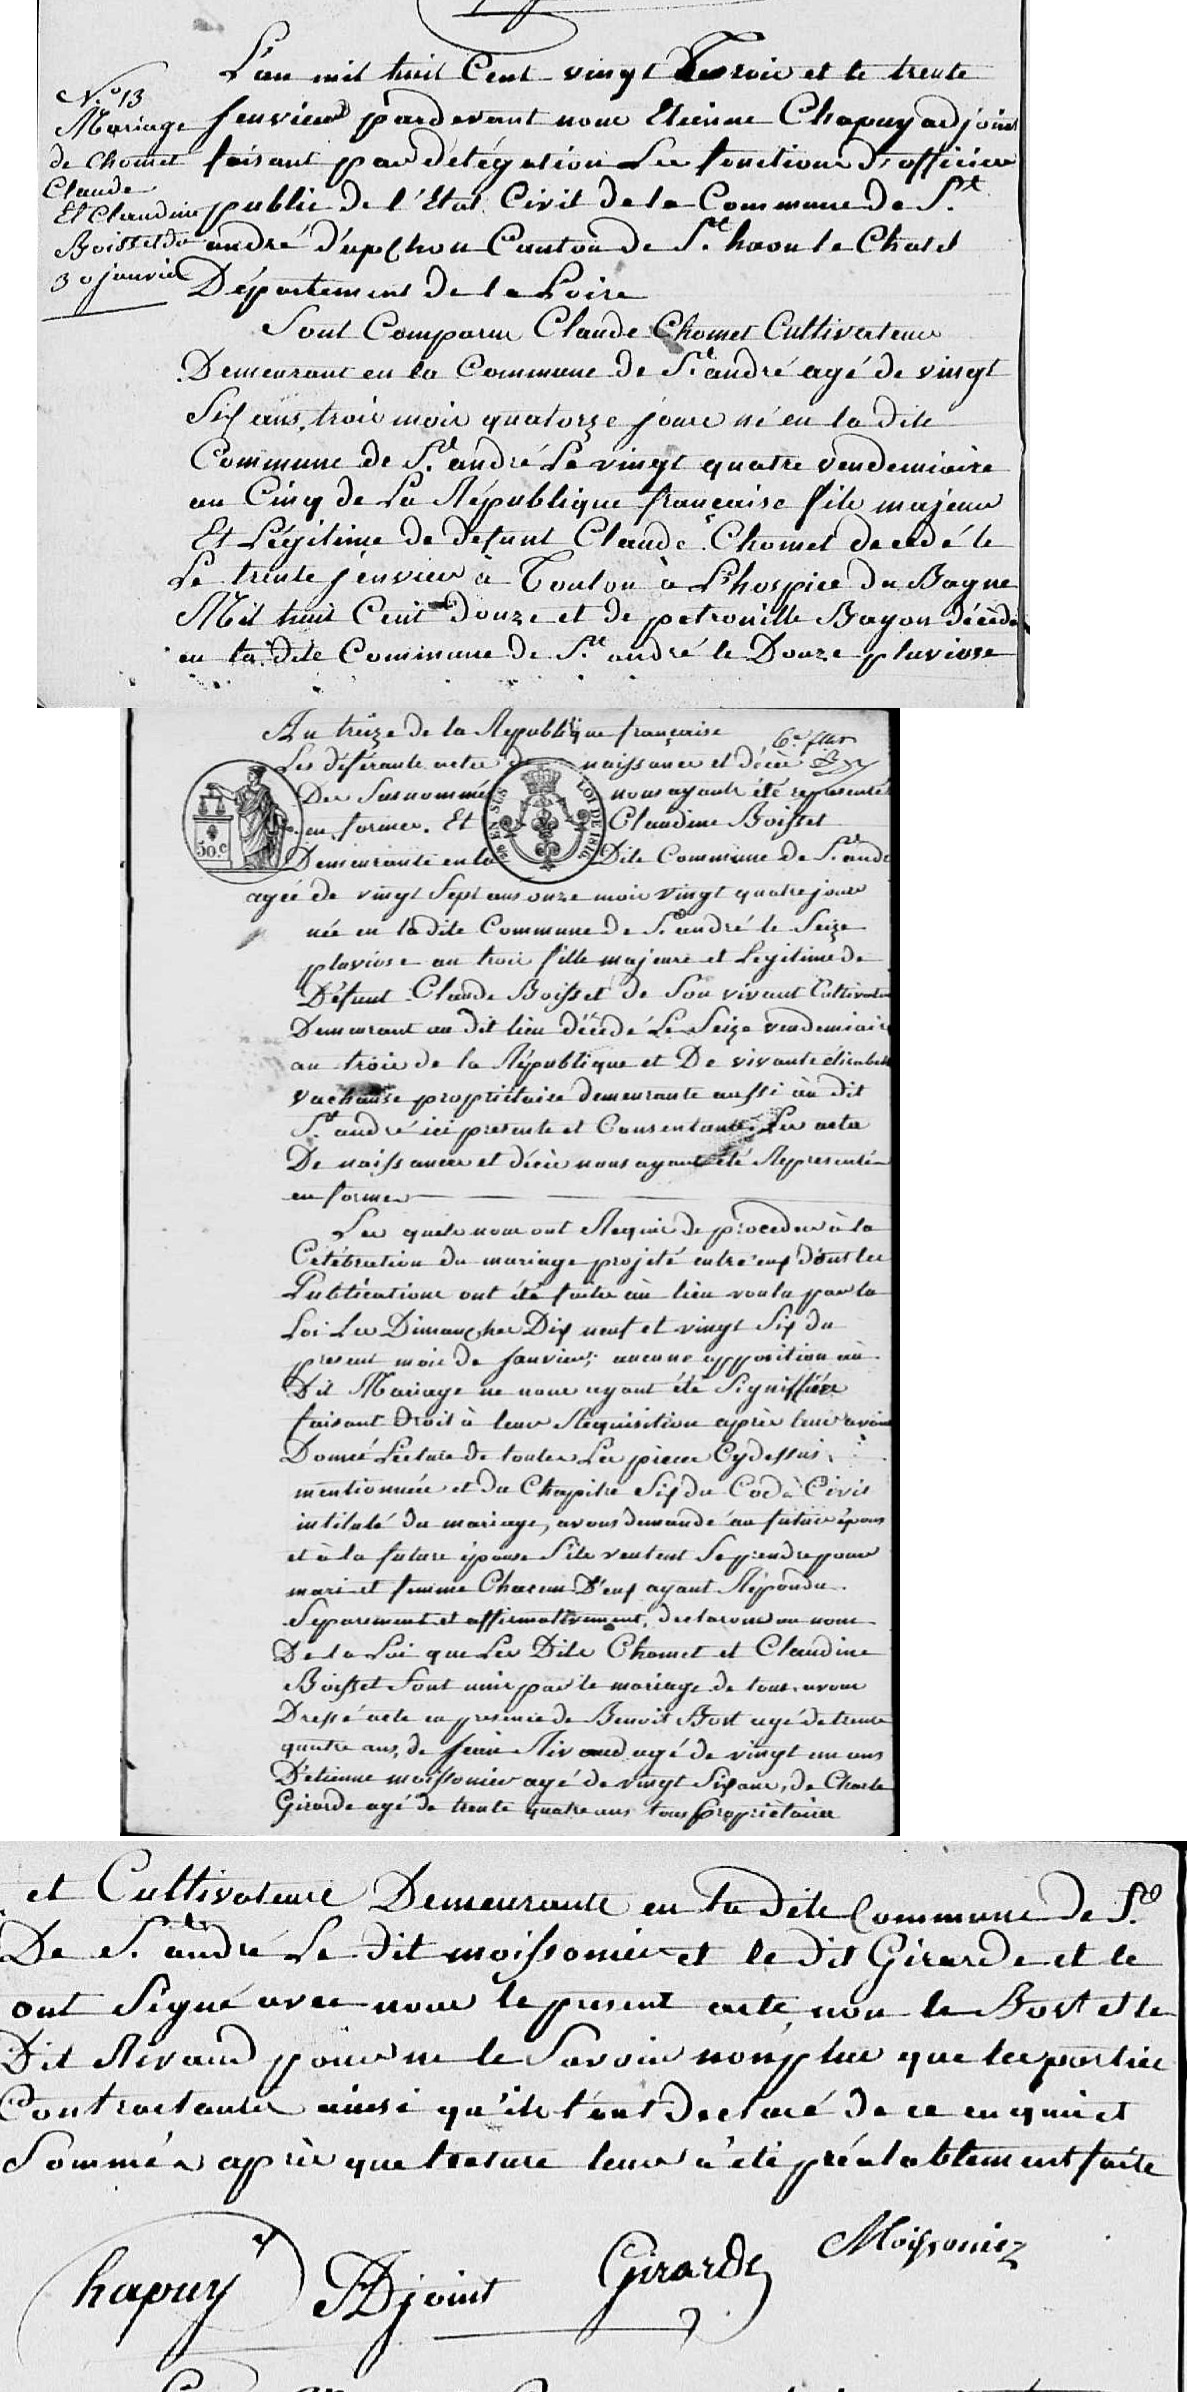 N.° 13
Mariage
de Chomet
Claude
Et Claudine
Boisset du
30 janvier
L'an mil huit Cent vingt trois et le trente
Janvier pardevant nous Etienne Chapuy adjoint
faisant par délégation Les fonctions d'officier
public de l'Etat Civil de la Commune de S.t
andré d'apchon Canton de S.t haon le Chatel
Département de la Loire
Sont Comparus Claude Chomet Cultivateur
Demeurant en la Commune de S.t andré agé de vingt
Six ans, trois mois quatorze jours né en la dite
Commune de S.t andré Le vingt quatre vendemiaire
an Cinq de La République française fils majeur
Et Légitime de defunt Claude Chomet decedé le
Le trente janvier à Toulon à L'hospice du Bagne
Mil huit Cent douze et de petronille Bayon décédée
en la dite Commune de S.t andré le Douze pluviose
An treize de la République française
Les déférants actes de naissance et décès
Des Susnommés nous ayants été representés
en formes. Et Claudine Boisset
Demeurante en la Dite Commune de S.t andré
50.c
EN SUS LOI DE 1816
agée de vingt Sept ans onze mois vingt quatre jours
née en la dite Commune de S.t andré le Seize
pluviose an trois fille majeure et Legitime de
Défunt Claude Boisset de Son vivant Cultivateur
Demeurant au dit lieu décédé Le Seize vendemiaire
an trois de la République et De vivante élisabeth
vachause propriétaire demeurante aussi au dit
S.t andré ici presente et Consentante. Les actes
De naissances et décès nous ayant été Representés
en formes
Les quels nous ont Requis de proceder à la
Célébration du mariage projeté entre eux dont les
Publications ont été faites au lieu voulu par la
Loi Les Dimanches Dix neuf et vingt Six du
present mois de Janvier; aucune opposition au
Dit Mariage ne nous ayant été Signiffiée
faisant Droit à leur Requisition après leur avoir
Donné Lecture de toutes Les pieces Cydessus
mentionnées et du Chapitre Six du Code Civil
intitulé du mariage, avons demandé au futur époux
et à la future épouse S'ils veulent Se prendre pour
mari et femme Chacun D'eux ayant Répondu
Separement et affirmativement, declarons au nom
De la Loi que Les Dits Chomet et Claudine
Boisset Sont unis par le mariage de tout avons
Dressé acte en presence de Benoit Bost agé de trente
quatre ans, de Jean Rivaud agé de vingt un ans
D'etienne moissonier agé de vingt Six ans, de Charle
Girarde agé de trente quatre ans tous propriètaires
et Cultivateurs Demeurants en la dite Commune de S.t
De S.t andré Le Dit moissonier et le dit Girarde et le
ont Signé avec nous le present acte, non le Bost et le
Dit Rivaud pour ne le Savoir non plus que les parties
Contractantes ainsi qu'ils l'ont declaré de ce enquis et
Sommés après que lecture leur à été préalablement faite
Chapuy ADjoint Girarde Moissonier